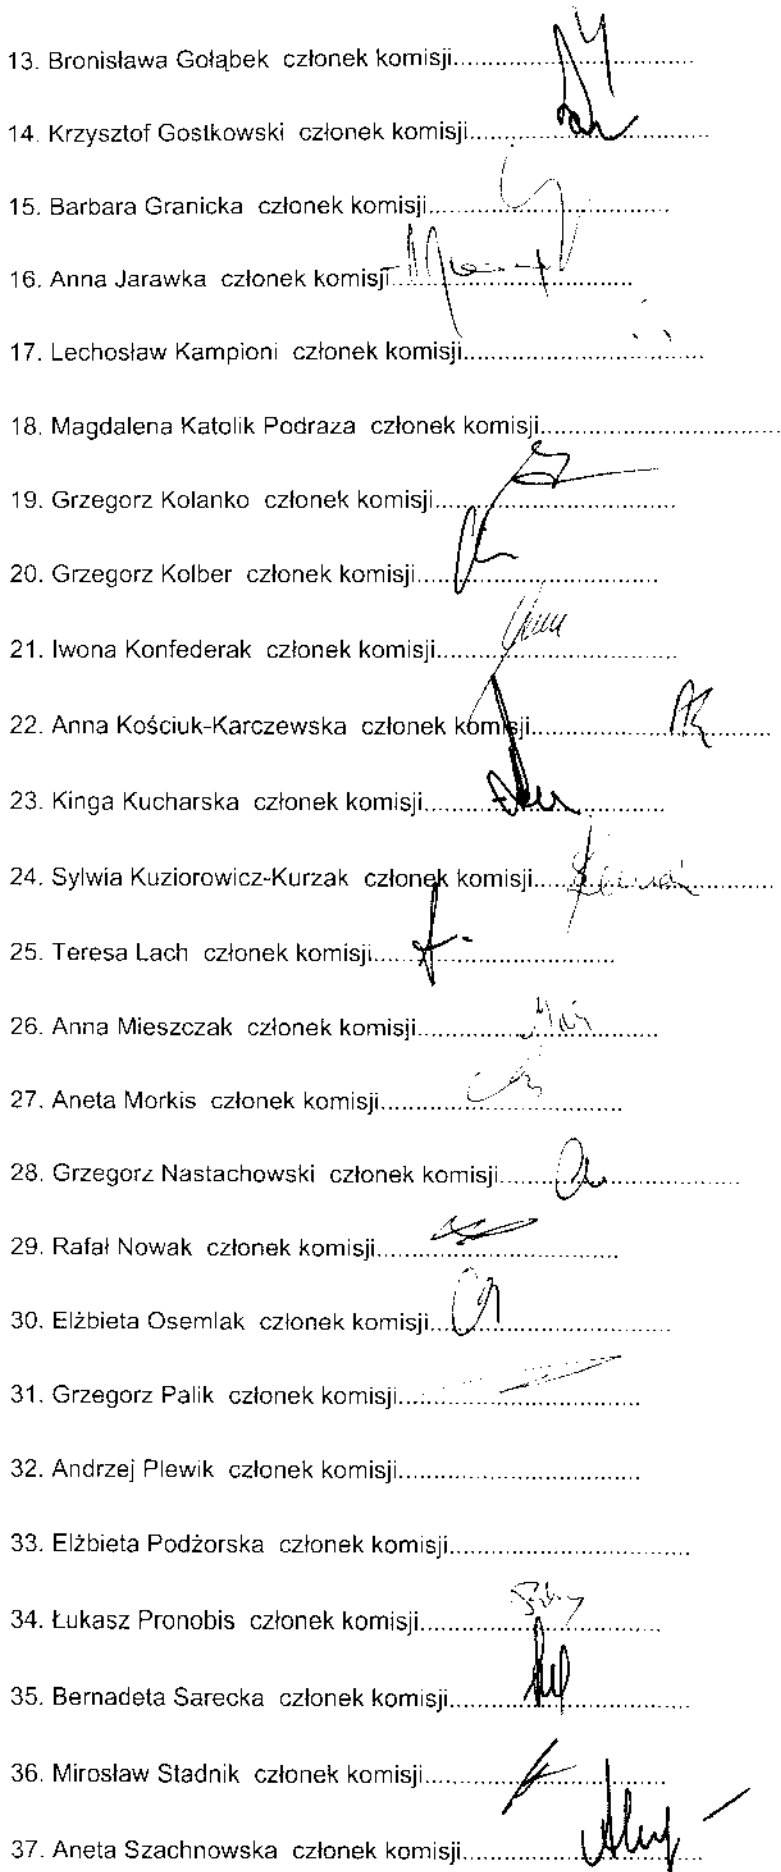 13. Bronisława Gołąbek członek komisji
14. Krzysztof Gostkowski członek komisji
15. Barbara Granicka członek komisji
16. Anna Jarawka członek komisji
17. Lechosław Kampioni członek komisji
18. Magdalena Katolik Podraza członek komisji
19. Grzegorz Kolanko członek komisji
20. Grzegorz Kolber członek komisji
21. Iwona Konfederak członek komisji
22. Anna Kościuk-Karczewska członek komisji
23. Kinga Kucharska członek komisji
24. Sylwia Kuziorowicz-Kurzak członek komisji
25. Teresa Lach członek komisji
26. Anna Mieszczak członek komisji
27. Aneta Morkis członek komisji
28. Grzegorz Nastachowski członek komisji
29. Rafał Nowak członek komisji
30. Elżbieta Osemlak członek komisji
31. Grzegorz Palik członek komisji
32. Andrzej Plewik członek komisji
33. Elżbieta Podżorska członek komisji
34. Łukasz Pronobis członek komisji
35. Bernadeta Sarecka członek komisji
36. Mirosław Stadnik członek komisji
37. Aneta Szachnowska członek komisji